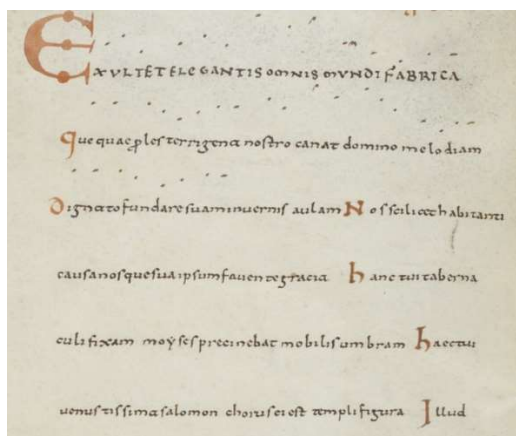 EXULTET ELEGANTIS OMNIS MUNDI FABRICA
queque ples terrigena nostro canat domino melodiam
Dignato fundare suam in uernis aulam Nos scilicet habitanti
causa nosque sua ipsum fauente gracia hanc tui taberna
culi fixam moyses precinebat mobilis umbram haec tui
uenustissima salomon chorusei est templi figura Illud